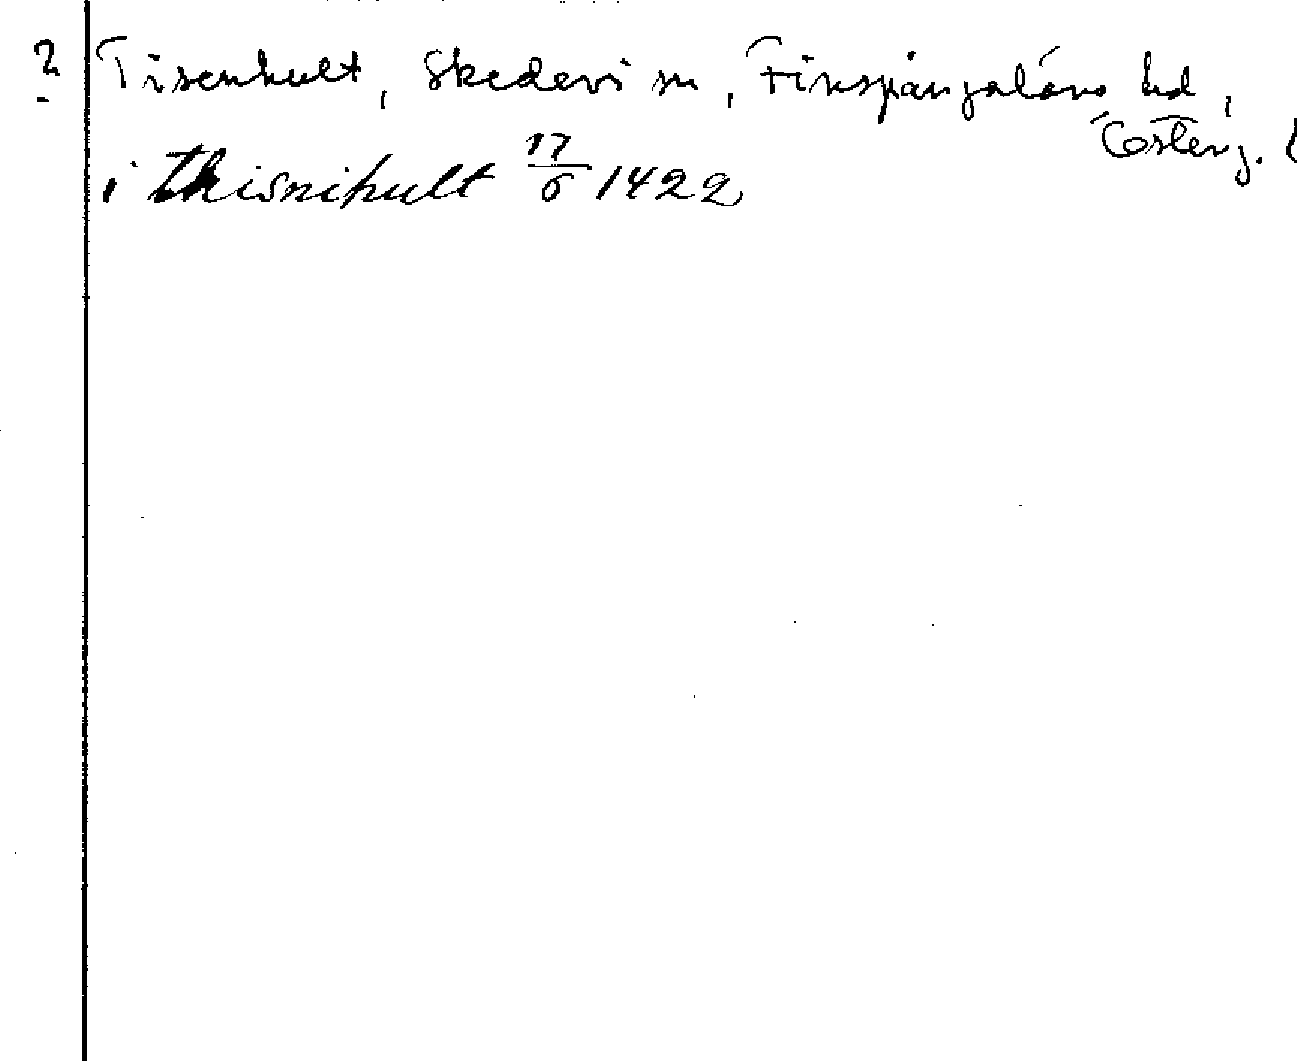 ? Tisenhult, Skedevi sn, Finspångaläns hd,
Österg. l
i Thisnihult 17/6 1422